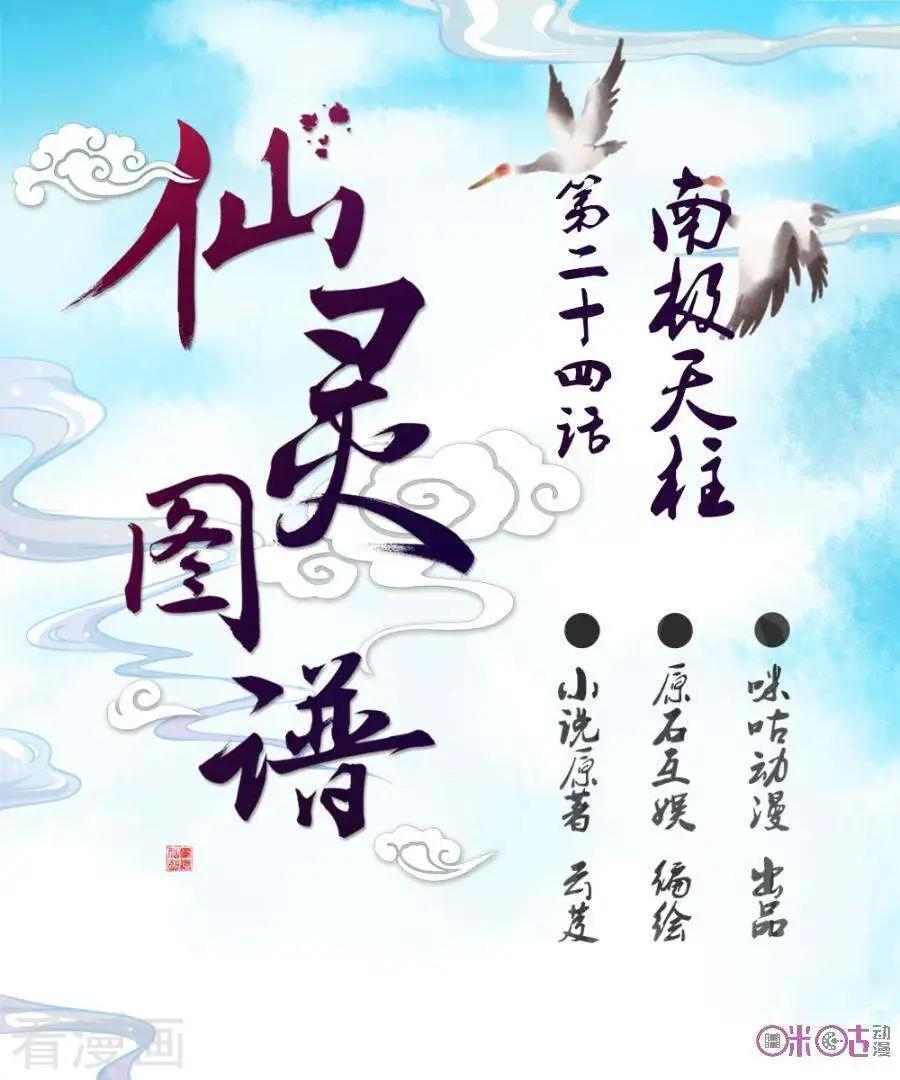 仙灵图谱
第二十四话
南极天柱
咪咕动漫 出品
原石互娱 编绘
小说原著 云芨
看漫画
咪咕动漫